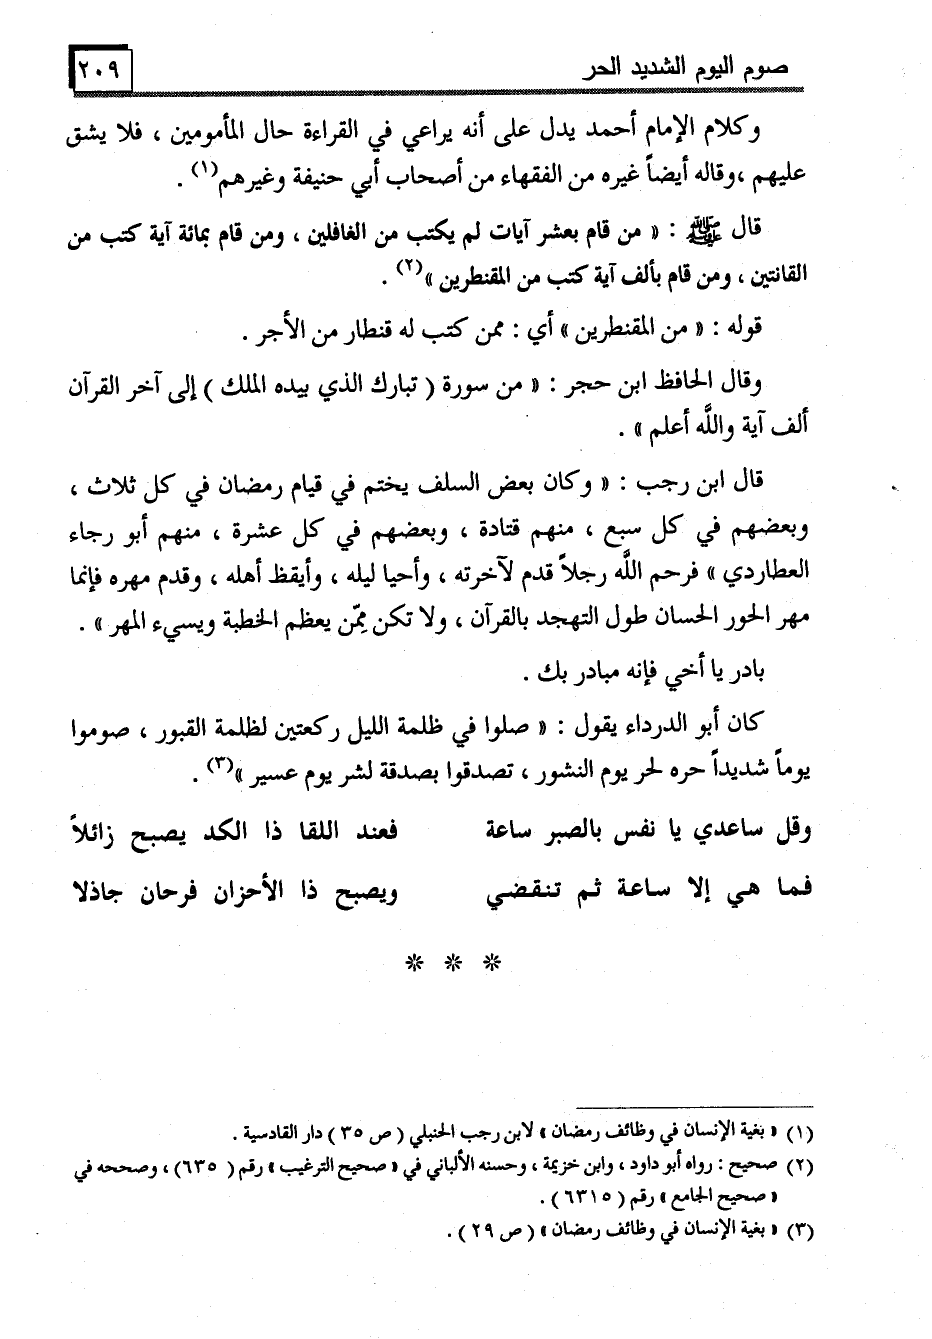 صوم اليوم الشديد الحر ٢٠٩
وكلام الإمام أحمد يدل على أنه يراعي في القراءة حال المأمومين ، فلا يشق
عليهم ،وقاله أيضاً غيره من الفقهاء من أصحاب أبي حنيفة وغيرهم(١) .
قال ﷺ : « من قام بعشر آيات لم يكتب من الغافلين ، ومن قام بمائة آية كتب من
القانتين ، ومن قام بألف آية كتب من المقنطرين »(٢) .
قوله : « من المقنطرين » أي : ممن كتب له قنطار من الأجر .
وقال الحافظ ابن حجر : « من سورة ( تبارك الذي بيده الملك ) إلى آخر القرآن
ألف آية واللَّه أعلم » .
قال ابن رجب : « وكان بعض السلف يختم في قيام رمضان في كل ثلاث ،
وبعضهم في كل سبع ، منهم قتادة ، وبعضهم في كل عشرة ، منهم أبو رجاء
العطاردي » فرحم اللَّه رجلاً قدم لآخرته ، وأحيا ليله ، وأيقظ أهله ، وقدم مهره فإنما
مهر الحور الحسان طول التهجد بالقرآن ، ولا تكن مِمّن يعظم الخطبة ويسيء المهر » .
بادر يا أخي فإنه مبادر بك .
كان أبو الدرداء يقول : « صلوا في ظلمة الليل ركعتين لظلمة القبور ، صوموا
يوماً شديداً حره لحر يوم النشور ، تصدقوا بصدقة لشر يوم عسير »(٣) .
وقل ساعدي يا نفس بالصبر ساعة فعند اللقا ذا الكد يصبح زائلاً
فما هي إلا ساعة ثم تنقضي ويصبح ذا الأحزان فرحان جاذلا
* * *
(١) « بغية الإنسان في وظائف رمضان » لابن رجب الحنبلي ( ص ٣٥ ) دار القادسية .
(٢) صحيح : رواه أبو داود ، وابن خزيمة ، وحسنه الألباني في « صحيح الترغيب » رقم ( ٦٣٥ ) ، وصححه في
« صحيح الجامع » رقم ( ٦٣١٥ ) .
(٣) « بغية الإنسان في وظائف رمضان » ( ص ٢٩ ) .